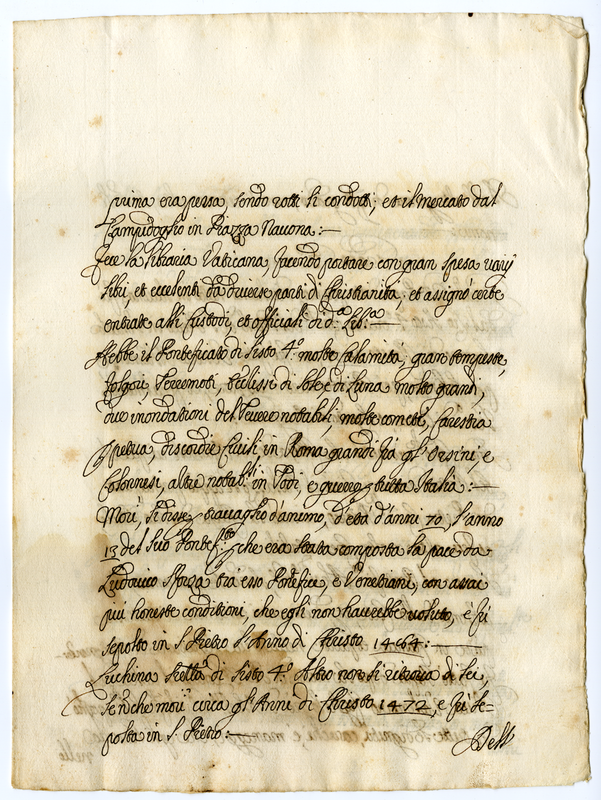 prima era persa, sendo rotti li condotti; et il mercato dal
Campidoglio in Piazza Nauona:—
Fece la libraria Vaticana, facendo portare con gran spesa varÿ
libri et eccelenti da diuerse parti di Christianità, et assignò certe
entrate alli Custodi, et officiali di d.ª Lib.ª —
Hebbe il Ponteficato di Sisto 4.º molte Calamità, gran tempeste,
folgori, Terremoti, Ecclissi di Sole, e di Luna molto grandi,
due inondationi del Teuere notabili, molte comete, Carestia
perpetua, discordie Ciuili in Roma grandi frà gl' Orsini, e
Colonnesi, altre notab.li in Todi, e guerre p tutta Italia:—
Morì, si disse p trauaglio d'animo, d'età d'anni 70, l'anno
13 del suo Pontef.to che era stata composta la pace da
Ludouico Sforza trà esso Pontefice, e Venetiani, con assai
più honeste conditioni, che egli non hauerebbe uoluto, e fù
sepolto in S. Pietro l'Anno di Christo 1484:—
Luchina di Sisto 4.º Altro non si ritroua di lei,
se nò che morì circa gl'Anni di Christo 1472, e fù se=
polta in S. Pietro:—
Dell